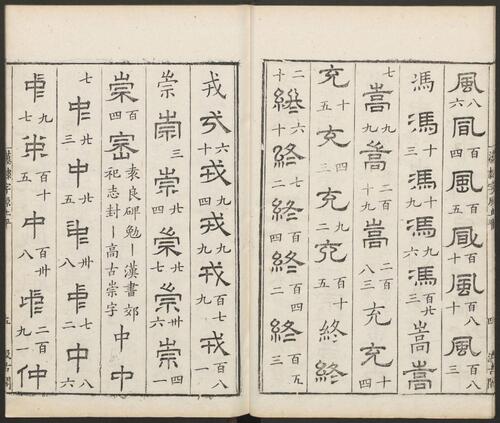 風八六風百四風九五風百十風百八風八三
馮馮十四馮九馮十九馮百廿六嵩嵩
七嵩九九嵩二百八三充充十四
充十五充四三充九二充百十終終
二十終十六終二七終二四終百二終百五三
戎戎六十戎九四戎九九戎百七九戎百八一
崇崇三崇廿四崇廿七崇卅六崇百四一
崇百四崈袁良碑勉｜漢書郊祀志封｜高古崇字中中
七中廿三中五中卅八中七二中八六
中九七中百十五中百卅八中二百九一仲